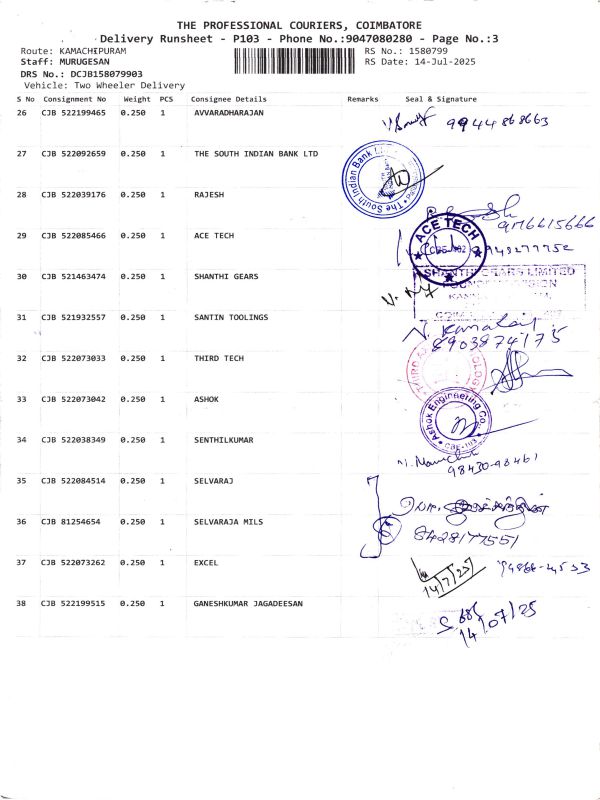 THE PROFESSIONAL COURIERS, COIMBATORE
Delivery Runsheet - P103 - Phone No.:9047080280 - Page No.:3
Route: KAMACHIPURAM RS No.: 1580799
Staff: MURUGESAN RS Date: 14-Jul-2025
DRS No.: DCJB158079903
Vehicle: Two Wheeler Delivery
S No Consignment No Weight PCS Consignee Details Remarks Seal & Signature
26 CJB 522199465 0.250 1 AVVARADHARAJAN 9944868663
27 CJB 522092659 0.250 1 THE SOUTH INDIAN BANK LTD
The South Indian Bank
28 CJB 522039176 0.250 1 RAJESH
29 CJB 522085466 0.250 1 ACE TECH
ACE TECH
30 CJB 521463474 0.250 1 SHANTHI GEARS
SHANTHI GEARS LIMITED
31 CJB 521932557 0.250 1 SANTIN TOOLINGS
8903874175
32 CJB 522073033 0.250 1 THIRD TECH
33 CJB 522073042 0.250 1 ASHOK
Ashok Engineering Co.
34 CJB 522038349 0.250 1 SENTHILKUMAR
98430-98461
35 CJB 522084514 0.250 1 SELVARAJ
36 CJB 81254654 0.250 1 SELVARAJA MILS
8428177551
37 CJB 522073262 0.250 1 EXCEL
14/7/25
38 CJB 522199515 0.250 1 GANESHKUMAR JAGADEESAN
14/07/25